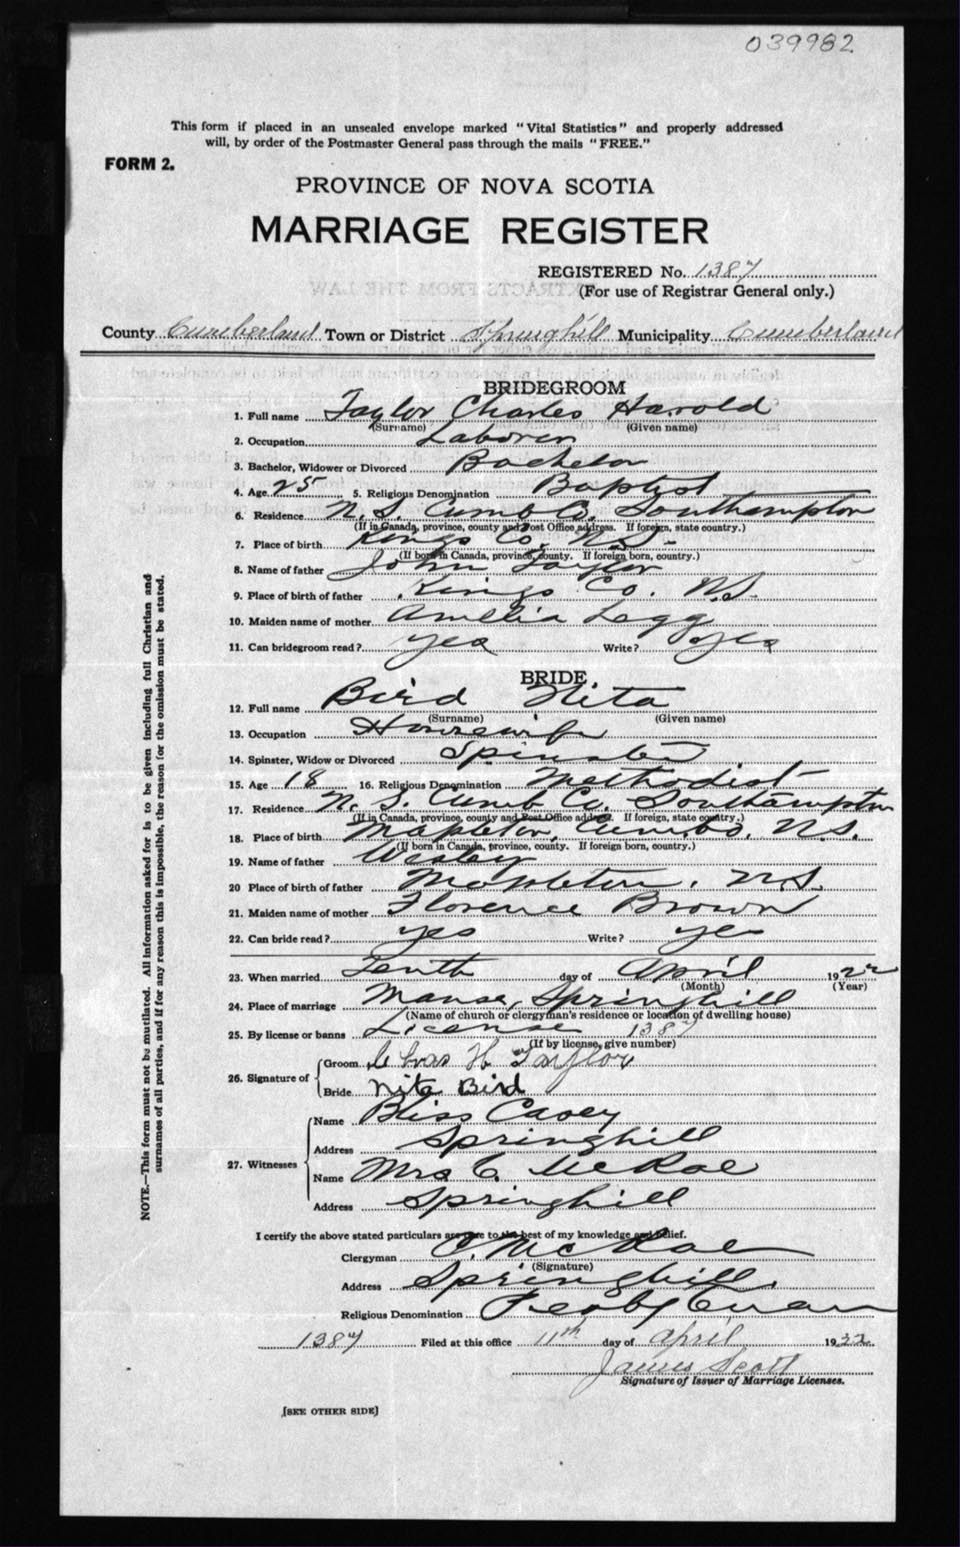 039982
This form if placed in an unsealed envelope marked "Vital Statistics" and properly addressed
will, by order of the Postmaster General pass through the mails "FREE."
FORM 2.
PROVINCE OF NOVA SCOTIA
MARRIAGE REGISTER
REGISTERED No. 1387
(For use of Registrar General only.)
County Cumberland Town or District Springhill Municipality Cumberland
BRIDEGROOM
1. Full name Taylor Charles Harold
(Surname) (Given name)
2. Occupation Laborer
3. Bachelor, Widower or Divorced Bachelor
4. Age 25 5. Religious Denomination Baptist
6. Residence N.S. Cumb Co. Southampton
(If in Canada, province, county and Post Office address. If foreign, state country.)
7. Place of birth Kings Co. N.S.
(If born in Canada, province, county. If foreign born, country.)
8. Name of father John Taylor
9. Place of birth of father Kings Co. N.S.
10. Maiden name of mother Amelia Legg
11. Can bridegroom read? yes Write? yes
BRIDE
12. Full name Bird Nita
(Surname) (Given name)
13. Occupation Housewife
14. Spinster, Widow or Divorced Spinster
15. Age 18 16. Religious Denomination Methodist
17. Residence N.S. Cumb Co. Southampton
(If in Canada, province, county and Post Office address. If foreign, state country.)
18. Place of birth Mapleton, Cumb, N.S.
(If born in Canada, province, county. If foreign born, country.)
19. Name of father Wesley
20 Place of birth of father Mapleton, N.S.
21. Maiden name of mother Florence Brown
22. Can bride read? yes Write? yes
23. When married Tenth day of April 1922
(Month) (Year)
24. Place of marriage Manse, Springhill
(Name of church or clergyman's residence or location of dwelling house)
25. By license or banns License 1387
(If by license, give number)
26. Signature of
Groom Chas H Taylor
Bride Nita Bird
27. Witnesses
Name Bliss Casey
Address Springhill
Name Mrs C. McRae
Address Springhill
I certify the above stated particulars are true to the best of my knowledge and belief.
Clergyman C. McRae
(Signature)
Address Springhill.
Religious Denomination Presbyterian
1387 Filed at this office 11th day of April 1922
James Scott
Signature of Issuer of Marriage Licenses.
[SEE OTHER SIDE]
NOTE.—This form must not be mutilated. All information asked for is to be given including full Christian and
surnames of all parties, and if for any reason this is impossible, the reason for the omission must be stated.